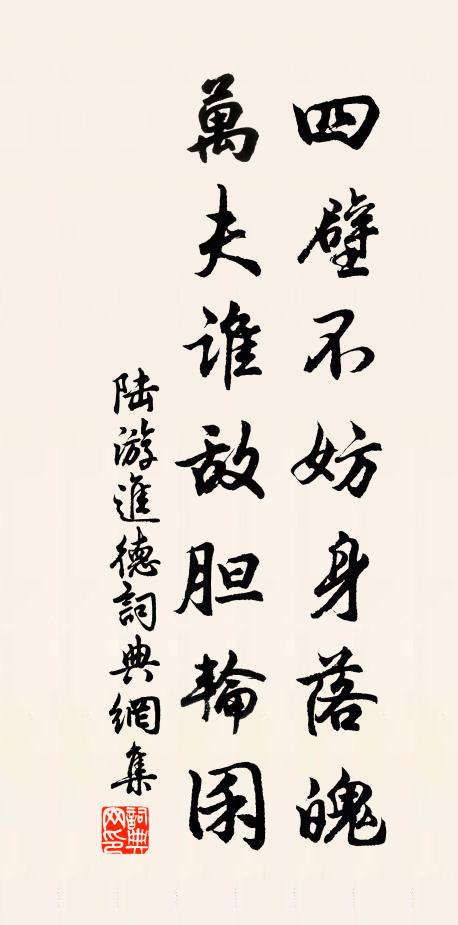 四壁不妨身落魄
萬夫谁敌胆輪囷
陆游進德詞典網集
詞典网印